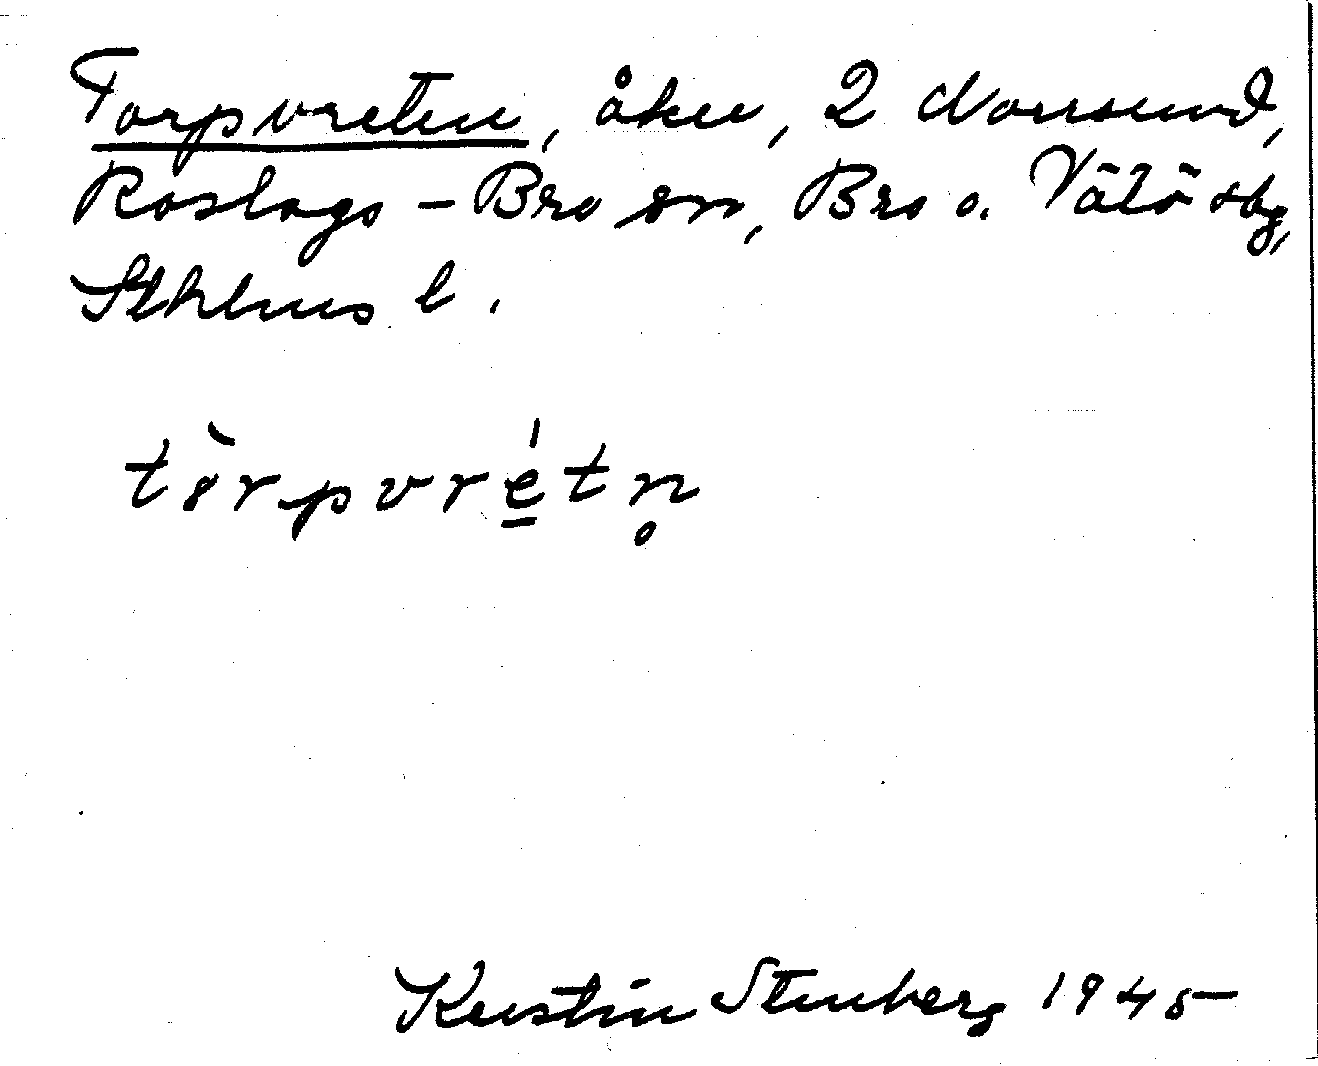 Torpvreten, åker, 2 Norrsund,
Roslags-Bro sn, Bro o. Vätö sbg,
Sthlms l.
tòrpvré̱tn̥
Kerstin Stenberg 1945